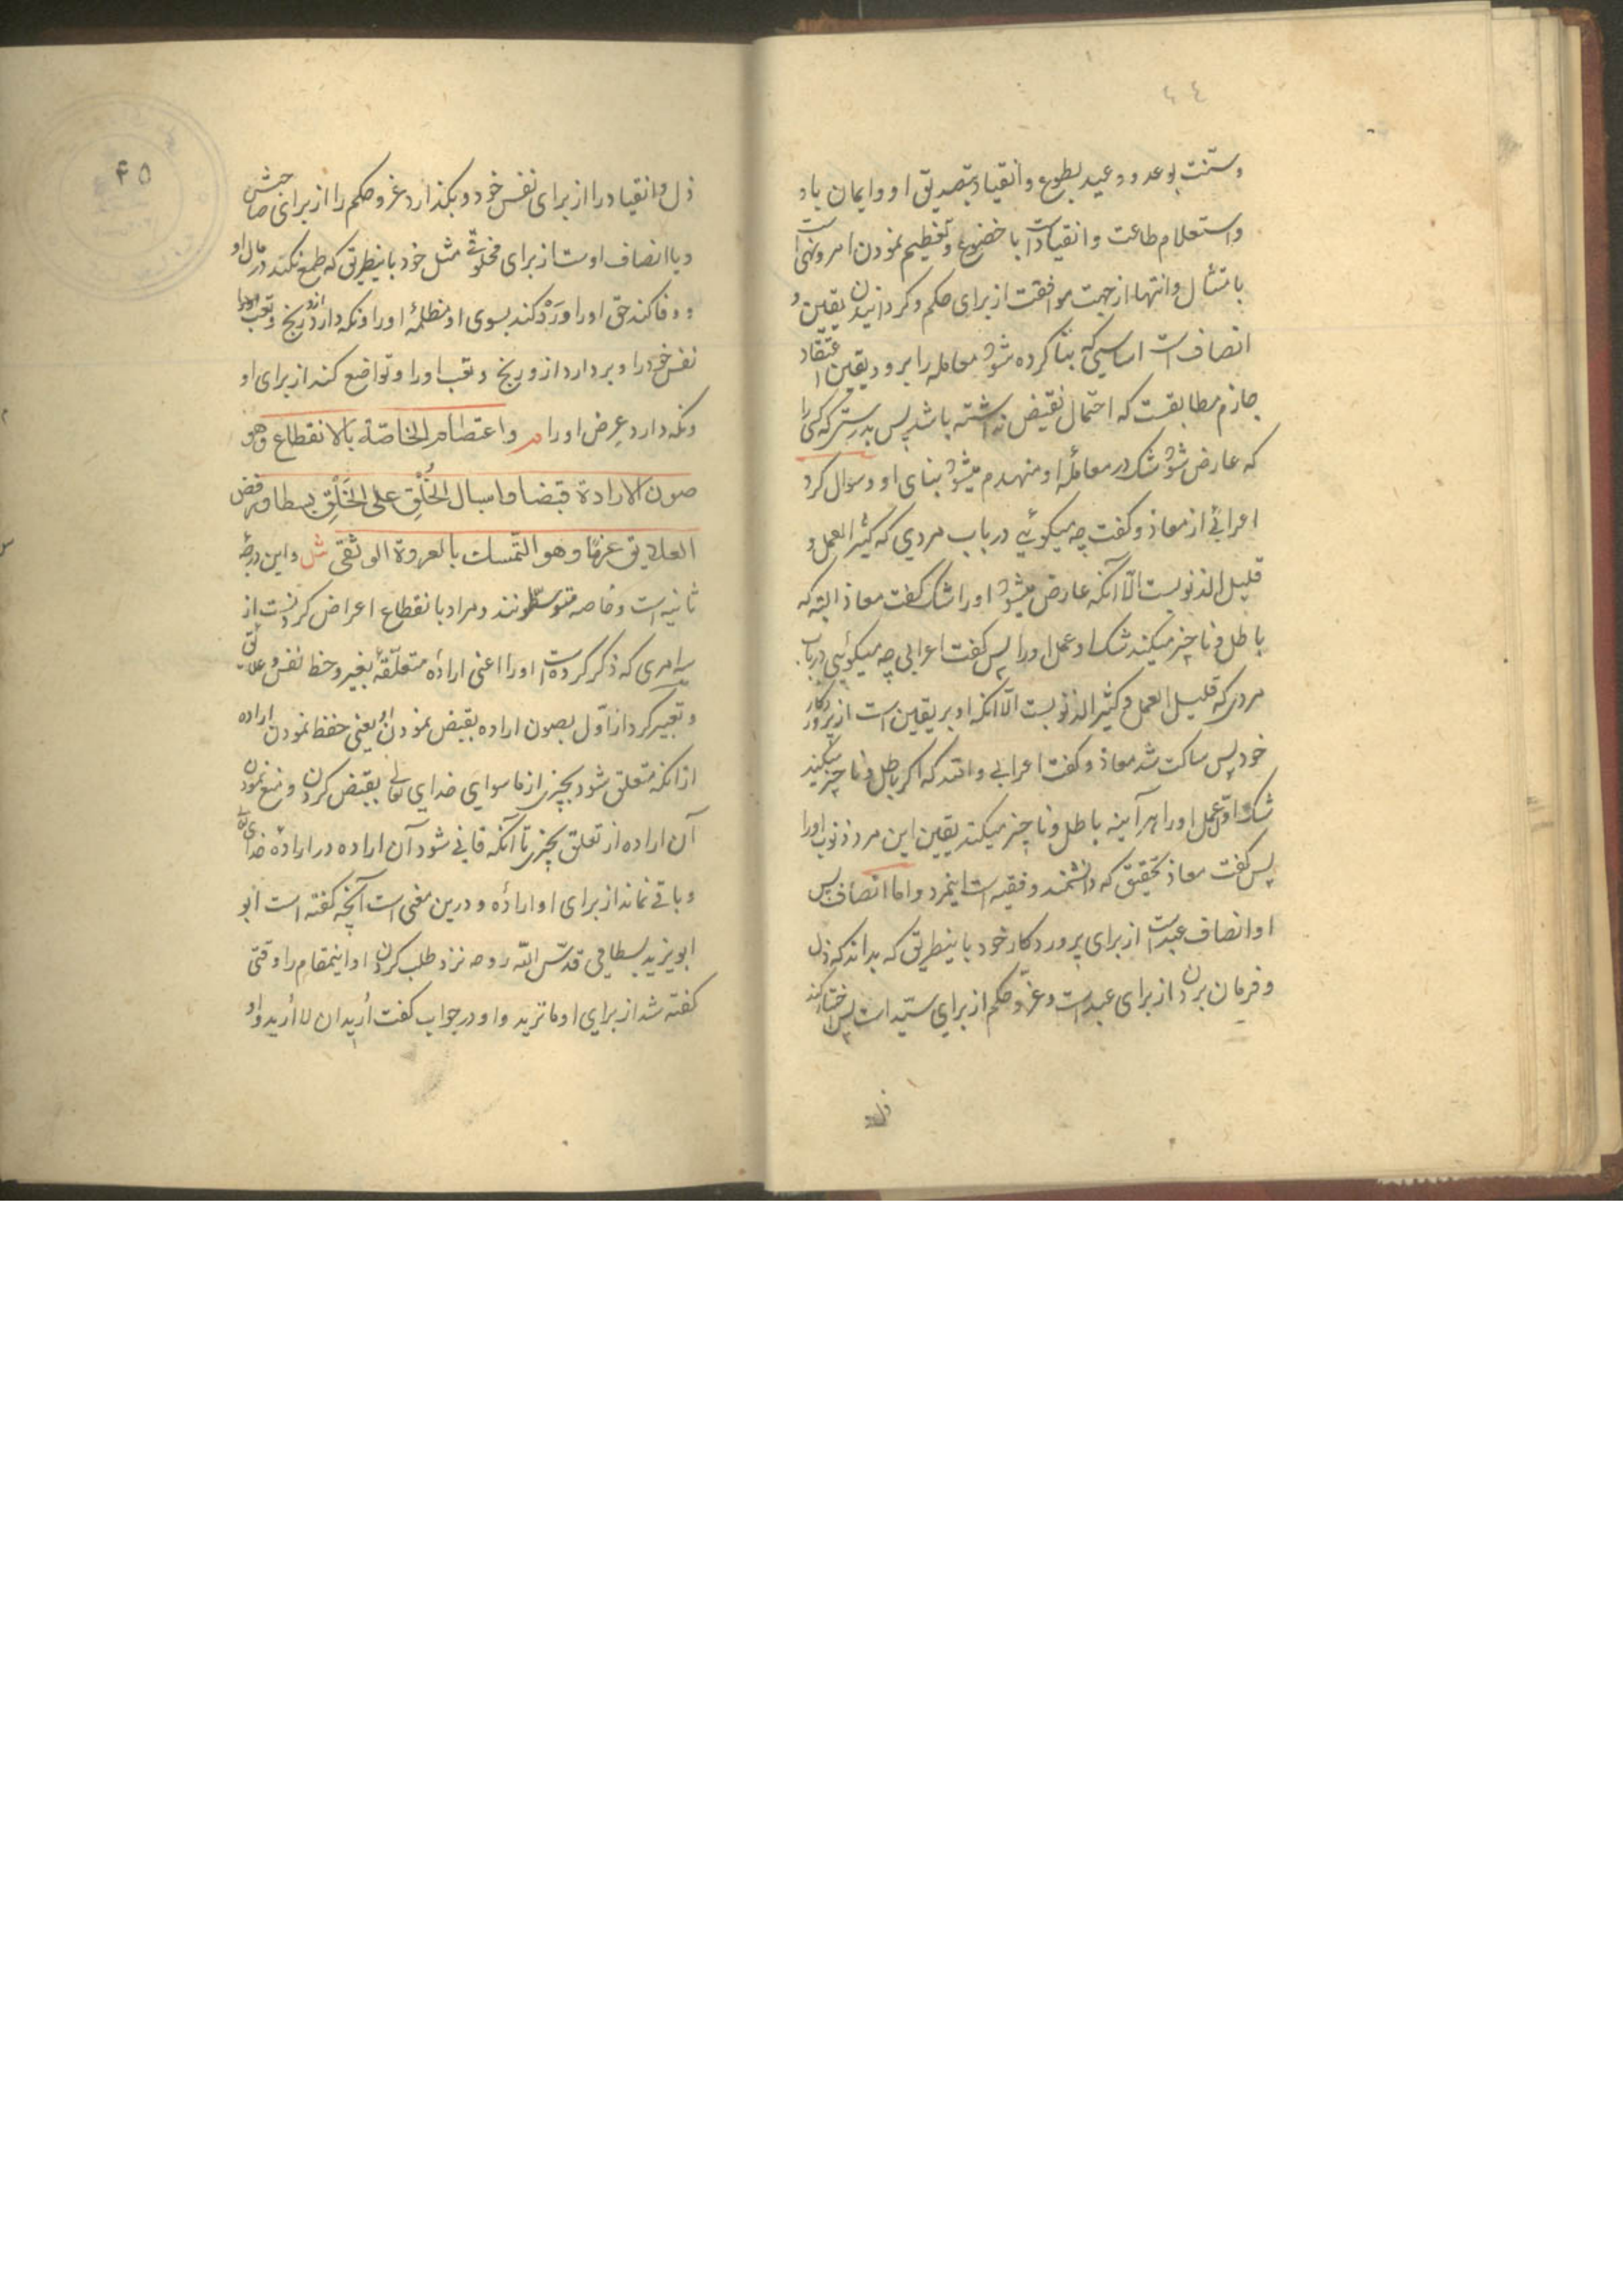 ٤٤
وسنّت بوعد ووعید بطوع وانقیاد بتصدیق او وایمان باو
واستعلام طاعت وانقیادات با خضوع وتعظیم نمودن امر ونهی است
بامتثال وانتها از جهت موافقت از برای حکم وکردانیدن یقین و
انصاف است اساسی که بنا کرده شود معامله را برو ویقین اعتقاد
جازم مطابقست که احتمال نقیض نداشته باشد پس بدرستی که کسی را
که عارض شود شک در معاملهٔ او منهدم میشود بنای او وسوال کرد
اعرابیٔ از معاذ وکفت چه میکوئی در باب مردی که کثیر العمل و
قلیل الذنوبست الّا آنکه عارض میشود او را شک کفت معاذ البته که
باطل وناچیز میکند شک او عمل او را پس کفت اعرابی چه میکوئی در باب
مردی که قلیل العمل وکثیر الذنوبست الّا آنکه او بر یقین است از پروردکار
خود پس ساکت شد معاذ وکفت اعرابی والله که اکر باطل وناچیز میکند
شک اوّل عمل او را هر آینه باطل وناچیز میکند یقین این مرد ذنوب او را
پس کفت معاذ بتحقیق که دانشمند وفقیه است اینمرد واما انصاف پس
او انصاف عبد است از برای پروردکار خود باینطریق که بداند که ذل
وفرمان بردن از برای عبد است وعزّ وحکم از برای سیّد است پس اختیار کند
ذل
٤٥
ذل وانقیاد را از برای نفس خود وبکذارد عز وحکم را از برای صاحبش
ویا انصاف اوست از برای مخلوقی مثل خود باینطریق که طمع نکند در مال او
ووفا کند حق او را ورَدْ کند بسوی او مظلمهٔ او را ونکه دارد از رنج وتعب او را
نفس خود را وبردارد ازو رنج وتعب او را وتواضع کند از برای او
ونکه دارد عِرض او را مر واعتصام الخاصّة بالانقطاع وهو
صون الارادة قبضا واسبال الخُلْق على الخَلْق بسطا ورفض
العلایق عزمًا وهو التمسك بالعروة الوثقى ش واین درجهٔ
ثانیه است وخاصه متوسطونند ومراد بانقطاع اعراض کردنست از
سه امری که ذکر کرده است او را اعنی ارادهٔ متعلّقهٔ بغیر وحظ نفس وعلایق
وتعبیر کرد از اوّل بصون اراده بقبض نمودن او یعنی حفظ نمودن اراده
از انکه متعلق شود بچیزی از ماسوای خدای تعالی بقبض کردن ومنع نمودن
آن اراده از تعلق بچیزی تا آنکه فانی شود آن اراده در ارادهٔ خدای تعالی
وباقی نماند از برای او ارادهٔ ودرین معنی است آنچه کفته است ابو
ابویزید بسطامی قدّس الله روحه نزد طلب کردن او اینمقام را وقتی
کفته شد از برای او ما ترید واو در جواب کفت اُرید ان لا اُرید واو